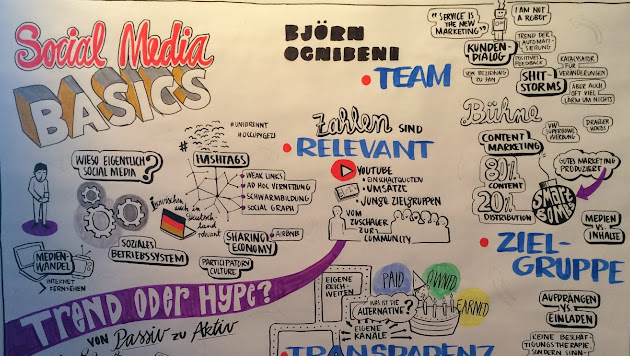 Social Media
BASICS
BJÖRN
OGNIBENI
TEAM
"SERVICE IS
THE NEW
MARKETING"
I AM NOT
A ROBOT
KUNDEN-
DIALOG
TREND DER
AUTOMATI-
SIERUNG
POSITIVES
FEEDBACK
KATALYSATOR
FÜR
VERÄNDERUNGEN
VON BEZIEHUNG
ZU FAN
SHIT-
STORMS
ABER AUCH
OFT VIEL
LÄRM UM NICHTS
Zahlen SIND
RELEVANT
YOUTUBE
EINSCHALTQUOTEN
UMSÄTZE
JUNGE ZIELGRUPPEN
VOM
ZUSCHAUER
ZUR
COMMUNITY
Bühne
CONTENT
MARKETING
80%
CONTENT
20%
DISTRIBUTION
VW
SUPERBOWL
WERBUNG
GUTES MARKETING
PRODUZIERT
SMART
BOMBS
MEDIEN
VS
INHALTE
ZIEL-
GRUPPE
AUFDRÄNGEN
VS
EINLADEN
KEINE BESCHÄF
TIGUNGSTHERAPIE
SONDERN SINN-
WIESO EIGENTLICH
SOCIAL MEDIA?
#UNIBRENNT
#OCCUPYGEZI
HASHTAGS
WEAK LINKS
AD HOC VERNETZUNG
SCHWARMBILDUNG
SOCIAL GRAPH
Inzwischen
auch in
Deutsch
land
relevant
MEDIEN-
WANDEL
INTERNET
FERNSEHEN
SOZIALES
BETRIEBSSYSTEM
SHARING
ECONOMY
AIRBNB
PARTICIPATORY
CULTURE
TREND ODER HYPE?
VON Passiv zu Aktiv
EIGENE
REICH-
WEITEN
WAS IST DIE
ALTERNATIVE?
EIGENE
KANÄLE
PAID
OWNED
EARNED
TRANSPARENZ